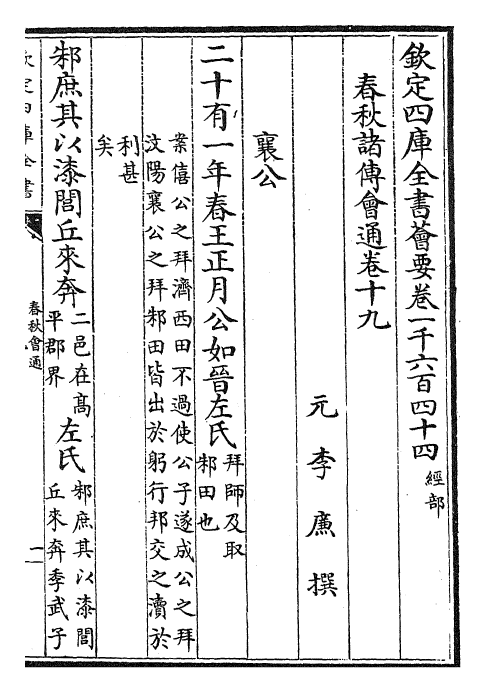 欽定四庫全書薈要卷一千六百四十四 經部
春秋諸傳會通卷十九
元 李廉 撰
襄公
二十有一年春王正月公如晉左氏拜師及取邾田也
案僖公之拜濟西田不過使公子遂成公之拜
汶陽襄公之拜邾田皆出於躬行邦交之瀆於
利甚
矣
邾庶其以漆閭丘來奔二邑在高平郡界左氏邾庶其以漆閭丘來奔季武子
欽定四庫全書
春秋會通
一